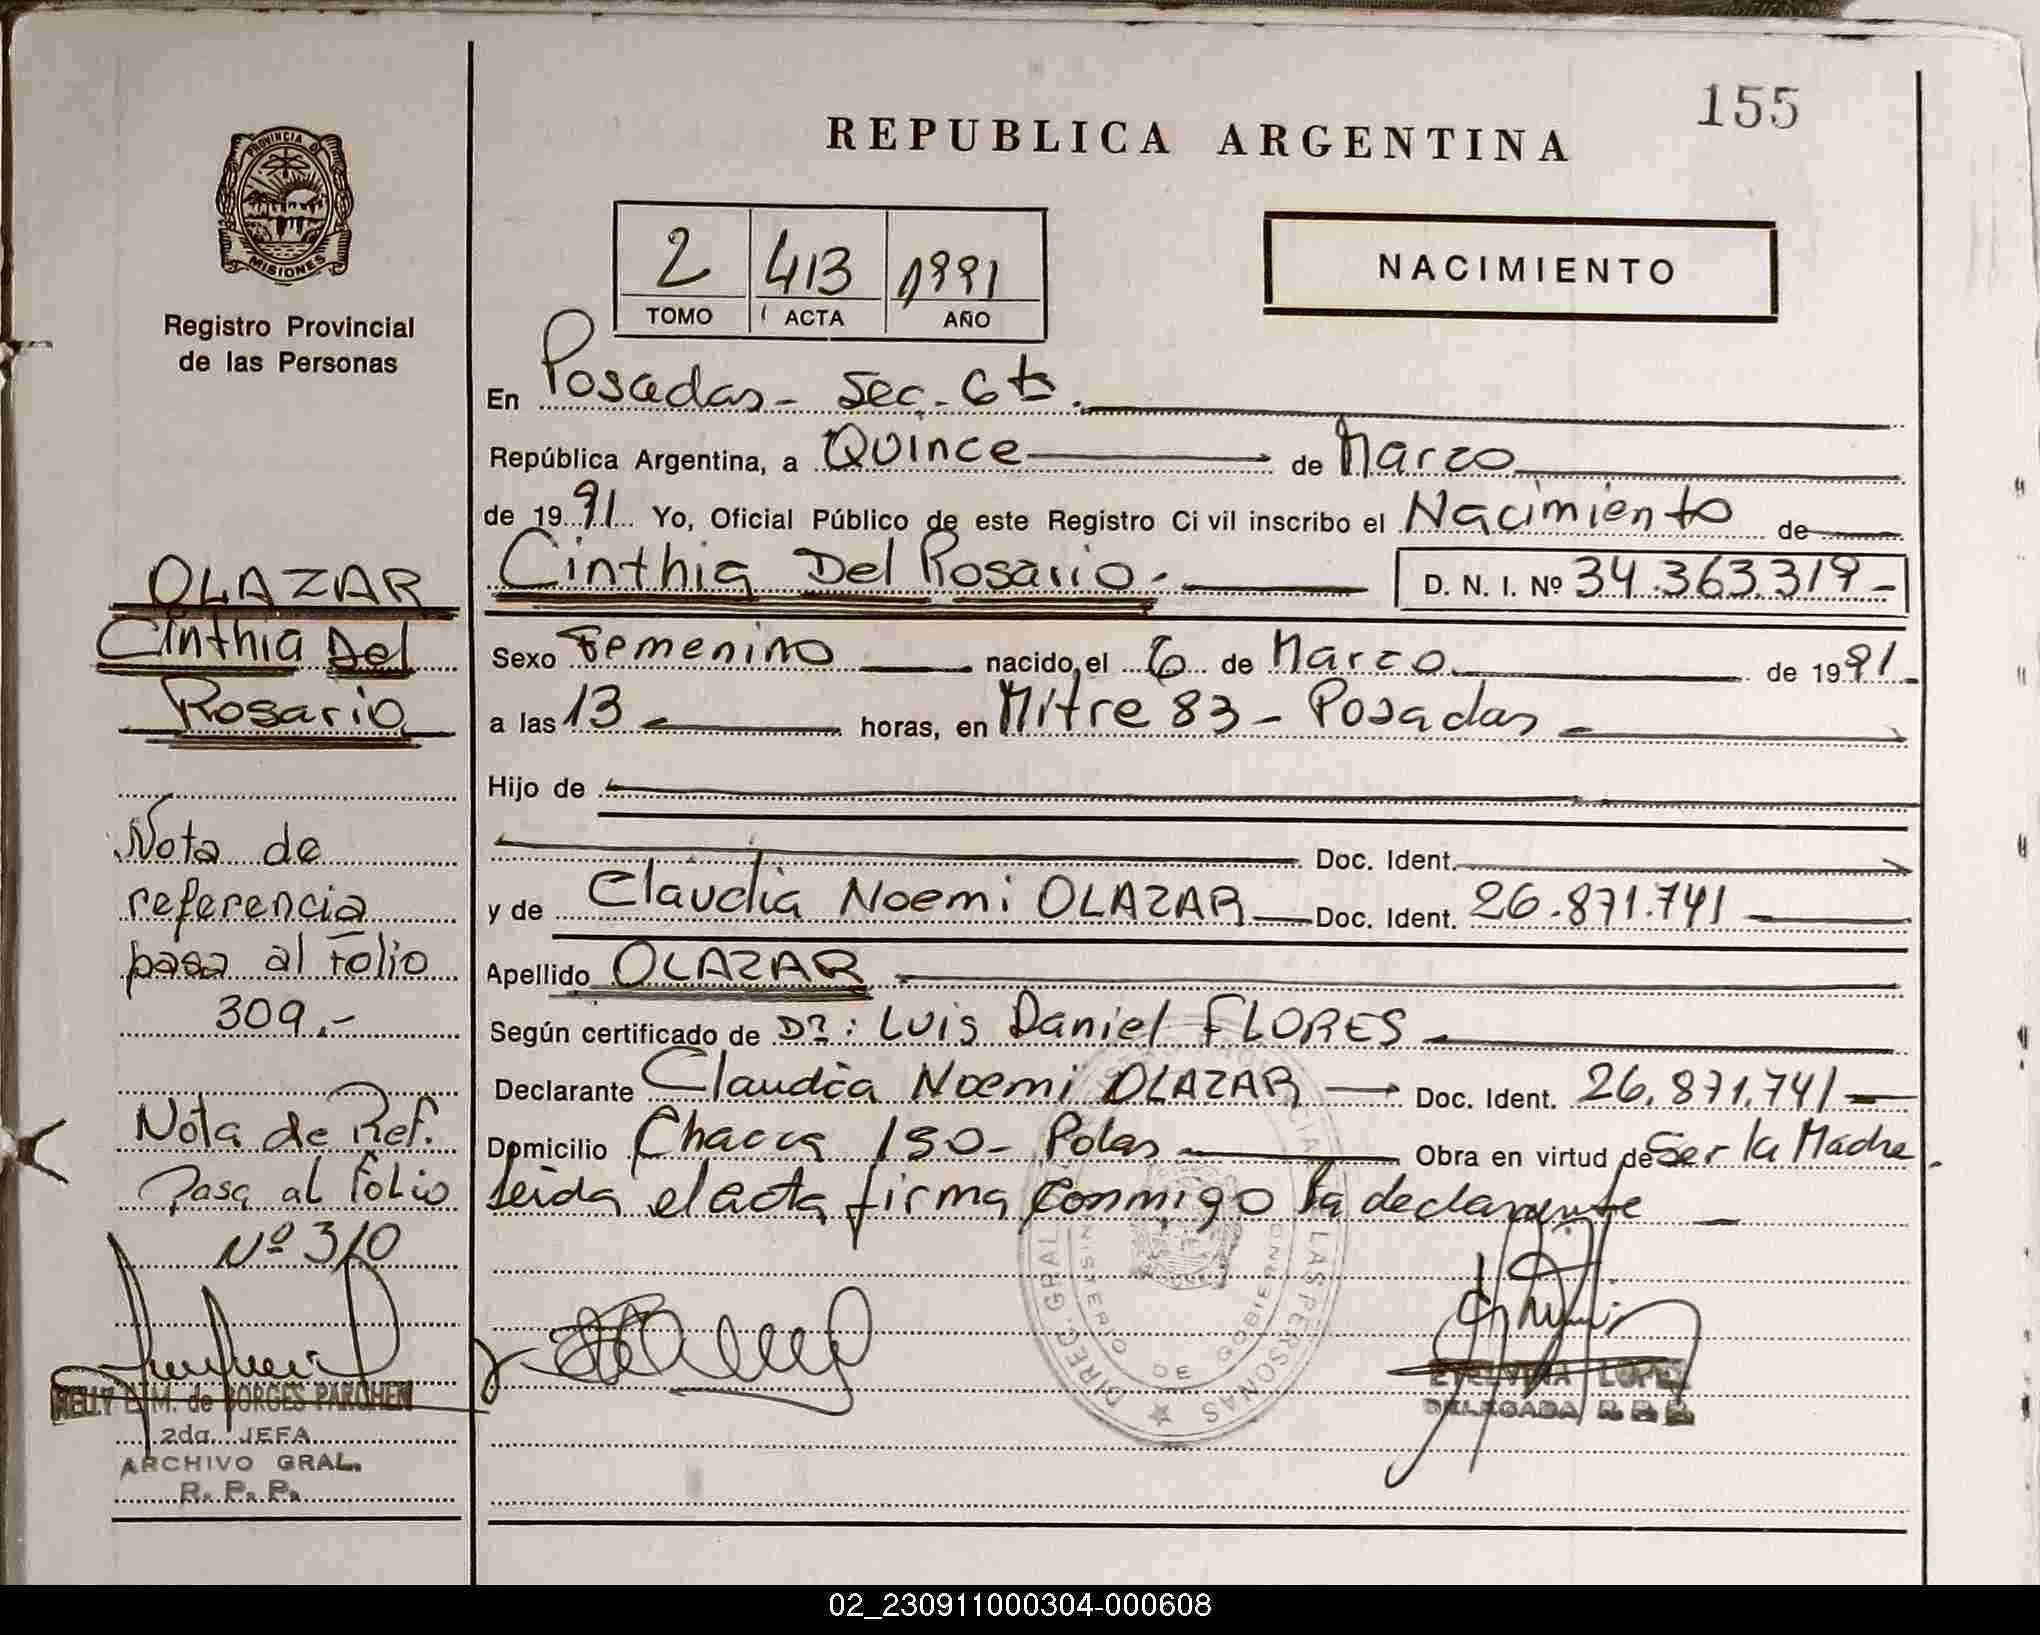 155
REPUBLICA ARGENTINA
PROVINCIA DE
MISIONES
Registro Provincial
de las Personas
2 413 1991
TOMO ACTA AÑO
NACIMIENTO
En Posadas - Sec. 6ta.
República Argentina, a Quince de Marzo
de 1991 Yo, Oficial Público de este Registro Civil inscribo el Nacimiento de
Cinthia Del Rosario.- D. N. I. Nº 34.363.319-
Sexo Femenino nacido el 6 de Marzo de 1991
a las 13 horas, en Mitre 83 - Posadas
Hijo de
Doc. Ident.
y de Claudia Noemi OLAZAR Doc. Ident. 26.871.741
Apellido OLAZAR
Según certificado de Dr.: Luis Daniel FLORES
Declarante Claudia Noemi OLAZAR Doc. Ident. 26.871.741
Domicilio 150- Pdas Obra en virtud de Ser la Madre.
Leida el acta firma conmigo la declarante
OLAZAR
Cinthia Del
Rosario
Nota de
referencia
pasa al Folio
309.-
Nota de Ref.
Pasa al Folio
Nº 310
NELLY E. M. de BORGES PARCHEN
2da. JEFA
ARCHIVO GRAL.
R. P. P.
DIREC. GRAL. LAS PERSONAS
DE GOBIERNO
ETELVINA LOPEZ
DELEGADA R. P. P.
02_230911000304-000608